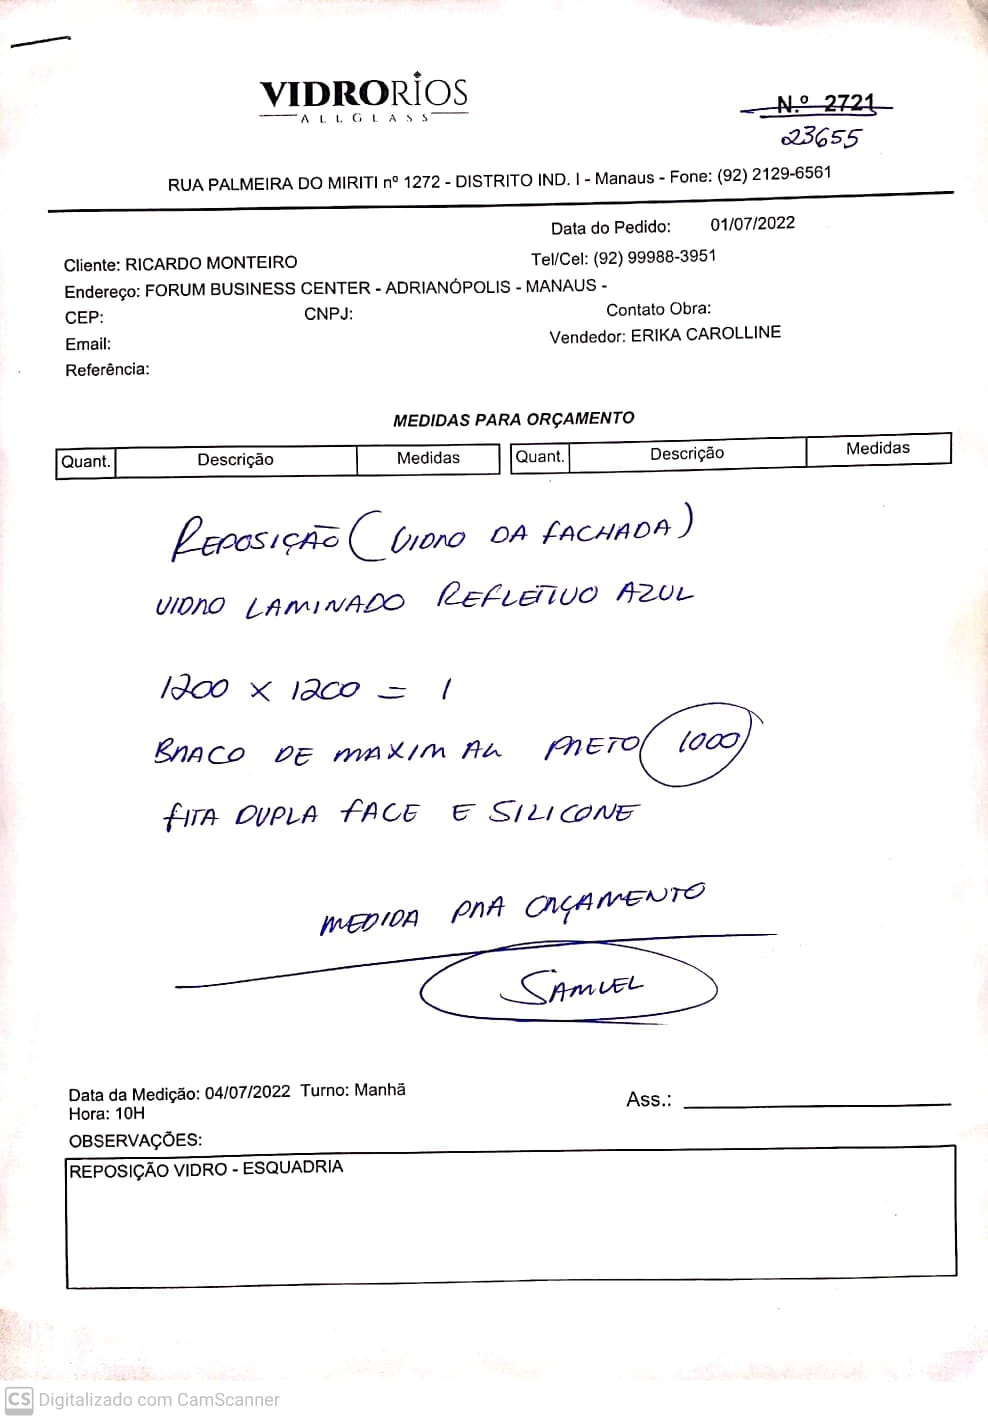 VIDRORIOS
ALLGLASS
N.º 2721
23655
RUA PALMEIRA DO MIRITI nº 1272 - DISTRITO IND. I - Manaus - Fone: (92) 2129-6561
Data do Pedido: 01/07/2022
Cliente: RICARDO MONTEIRO Tel/Cel: (92) 99988-3951
Endereço: FORUM BUSINESS CENTER - ADRIANÓPOLIS - MANAUS -
CEP: CNPJ: Contato Obra:
Email: Vendedor: ERIKA CAROLLINE
Referência:
MEDIDAS PARA ORÇAMENTO
Quant. Descrição Medidas Quant. Descrição Medidas
REPOSIÇÃO (VIDRO DA FACHADA)
VIDRO LAMINADO REFLETIVO AZUL
1200 x 1200 = 1
BRACO DE MAXIM AR PRETO 1000
FITA DUPLA FACE E SILICONE
MEDIDA PRA ORÇAMENTO
SAMUEL
Data da Medição: 04/07/2022 Turno: Manhã
Hora: 10H Ass.:
OBSERVAÇÕES:
REPOSIÇÃO VIDRO - ESQUADRIA
CS Digitalizado com CamScanner